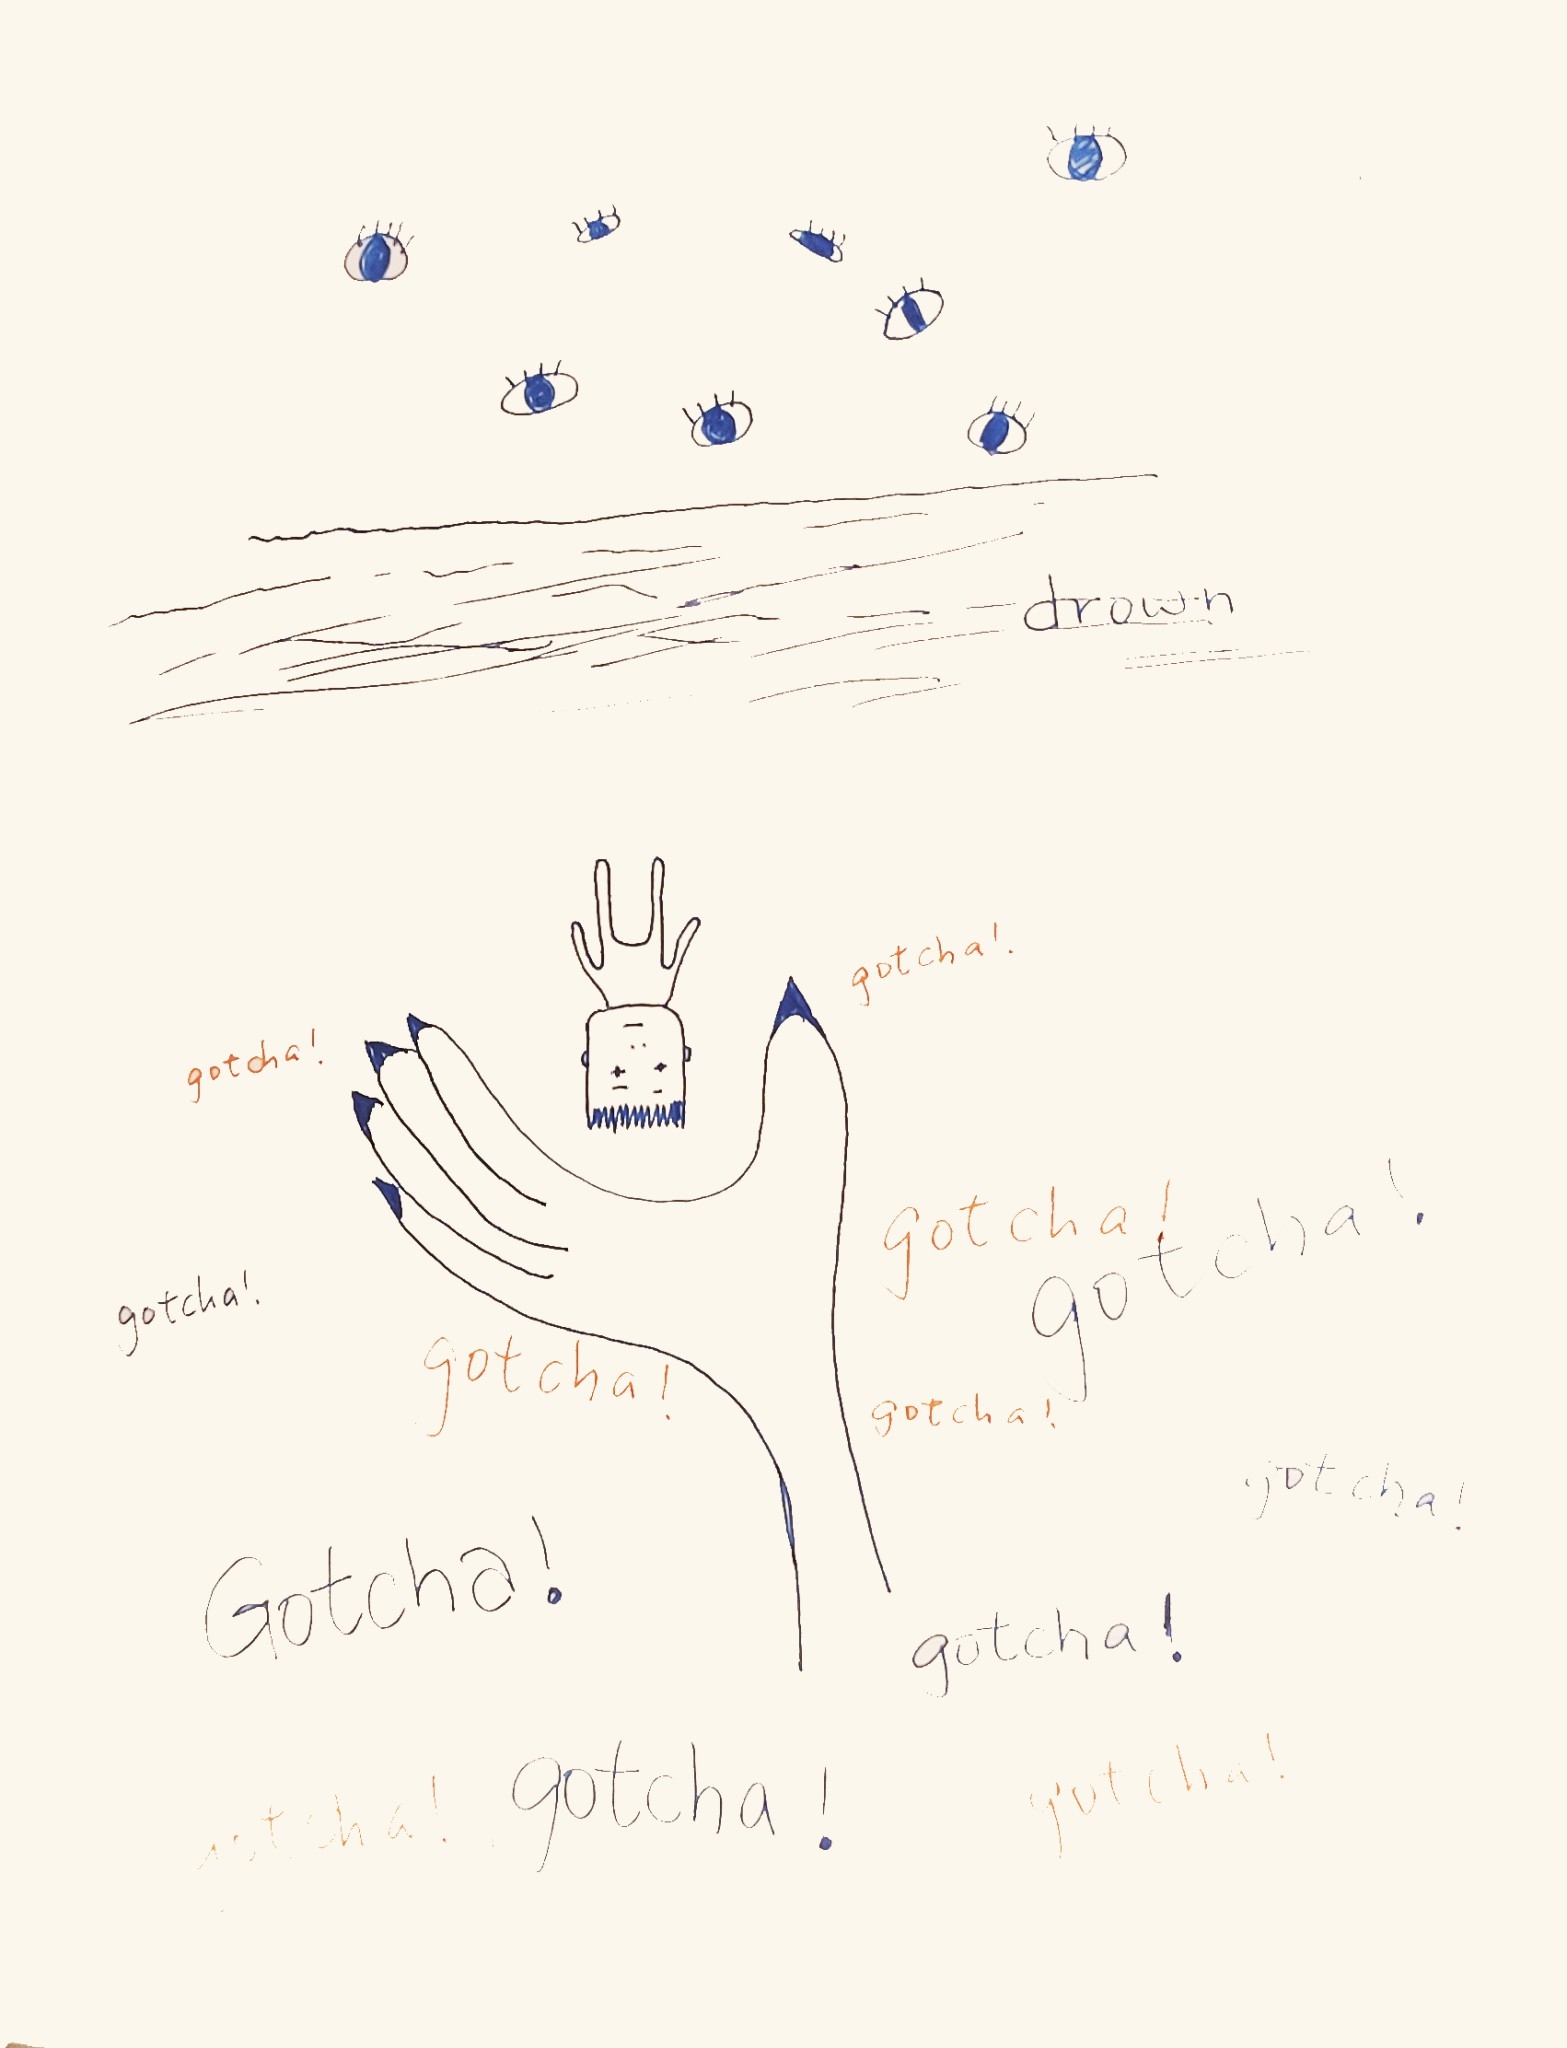 drown
gotcha!
gotcha!
gotcha!
gotcha!
gotcha!
gotcha!
gotcha!
gotcha!
Gotcha!
gotcha!
gotcha!
gotcha!